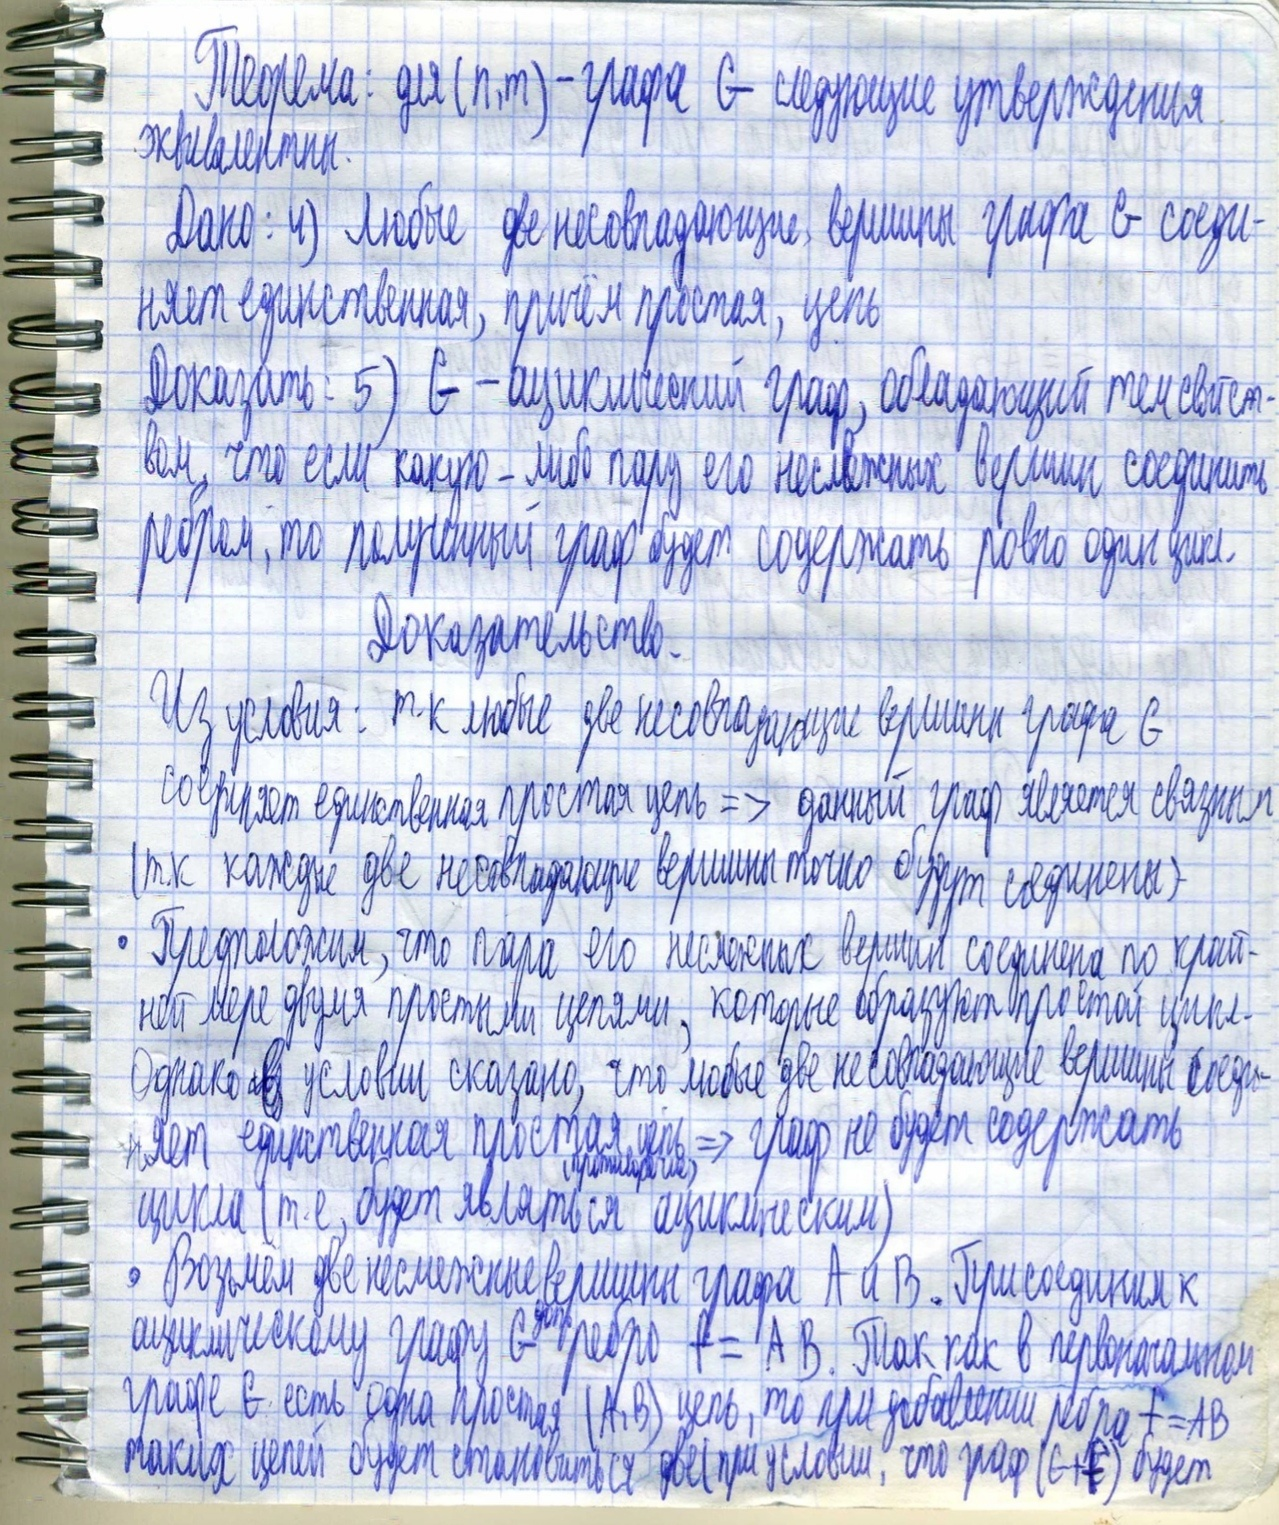 Теорема: для (n,m)-графа G следующие утверждения
эквивалентны.
Дано: 4) Любые две несовпадающие вершины графа G соеди-
няет единственная, причём простая, цепь
Доказать: 5) G - ациклический граф, обладающий тем свойст-
вом, что если какую-либо пару его несмежных вершин соединить
ребром, то полученный граф будет содержать ровно один цикл.
Доказательство.
Из условия: т.к любые две несовпадающие вершины графа G
соединяет единственная простая цепь => данный граф является связным
(т.к каждые две несовпадающие вершины точно будут соединены)
• Предположим, что пара его несмежных вершин соединена по край-
ней мере двумя простыми цепями, которые образуют простой цикл.
Однако в условии сказано, что любые две несовпадающие вершины соеди-
няет единственная простая цепь => граф не будет содержать
(противоречие)
цикла (т.е, будет являться ациклическим)
• Возьмём две несмежные вершины графа A и B. Присоединим к
ациклическому графу G доп. ребро f = AB. Так как в первоначальном
графе G есть одна простая (A,B) цепь, то при добавлении ребра f=AB
таких цепей будет становиться две (при условии, что граф (G+f) будет